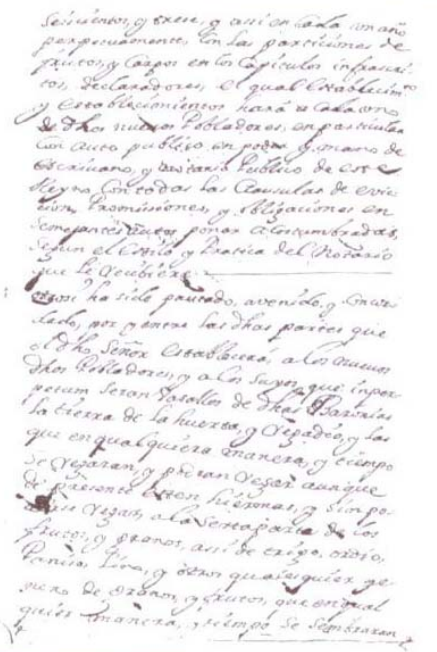 Seiscientos, y trese, y assi en Cada un año
perpetuamente, Con las particiones de
frutos, y Cargos en los Capitulos infrascri-
tos, declaradores, el qual Establecimto
y establecimientos hará a Cada uno
de dhos nuevos Pobladores, en particular
Con auto publico, en poder, y mano de
Escrivano, y Notario Publico de este
Reyno, Con todas las Clausulas de evic-
cion, Promisiones, y obligaciones en
semejantes autos poner acostumbradas,
segun el estilo, y Pratica del Notario
que le recibiere.
Otrosi ha sido pautado, avenido, y Concor-
dado, por y entre las dhas partes que
el dho Señor establecerá, a los nuevos
dhos Pobladores, y a los suyos, que in per-
petuum seran Vasallos de dhas Baronias
la tierra de la huerta, y Regadio, y las
que en qualquiera manera, y tiempo
se Regaran, y podran Regar aunque
de presente esten hiermas, y sin po-
derse Regar, a la Sextaparte de los
frutos, y granos, assi de trigo, ordio,
Panizo, Lino, y otros qualesquier ge-
nero de granos, y frutos, que en qual
quier manera, y tiempo se sembraran